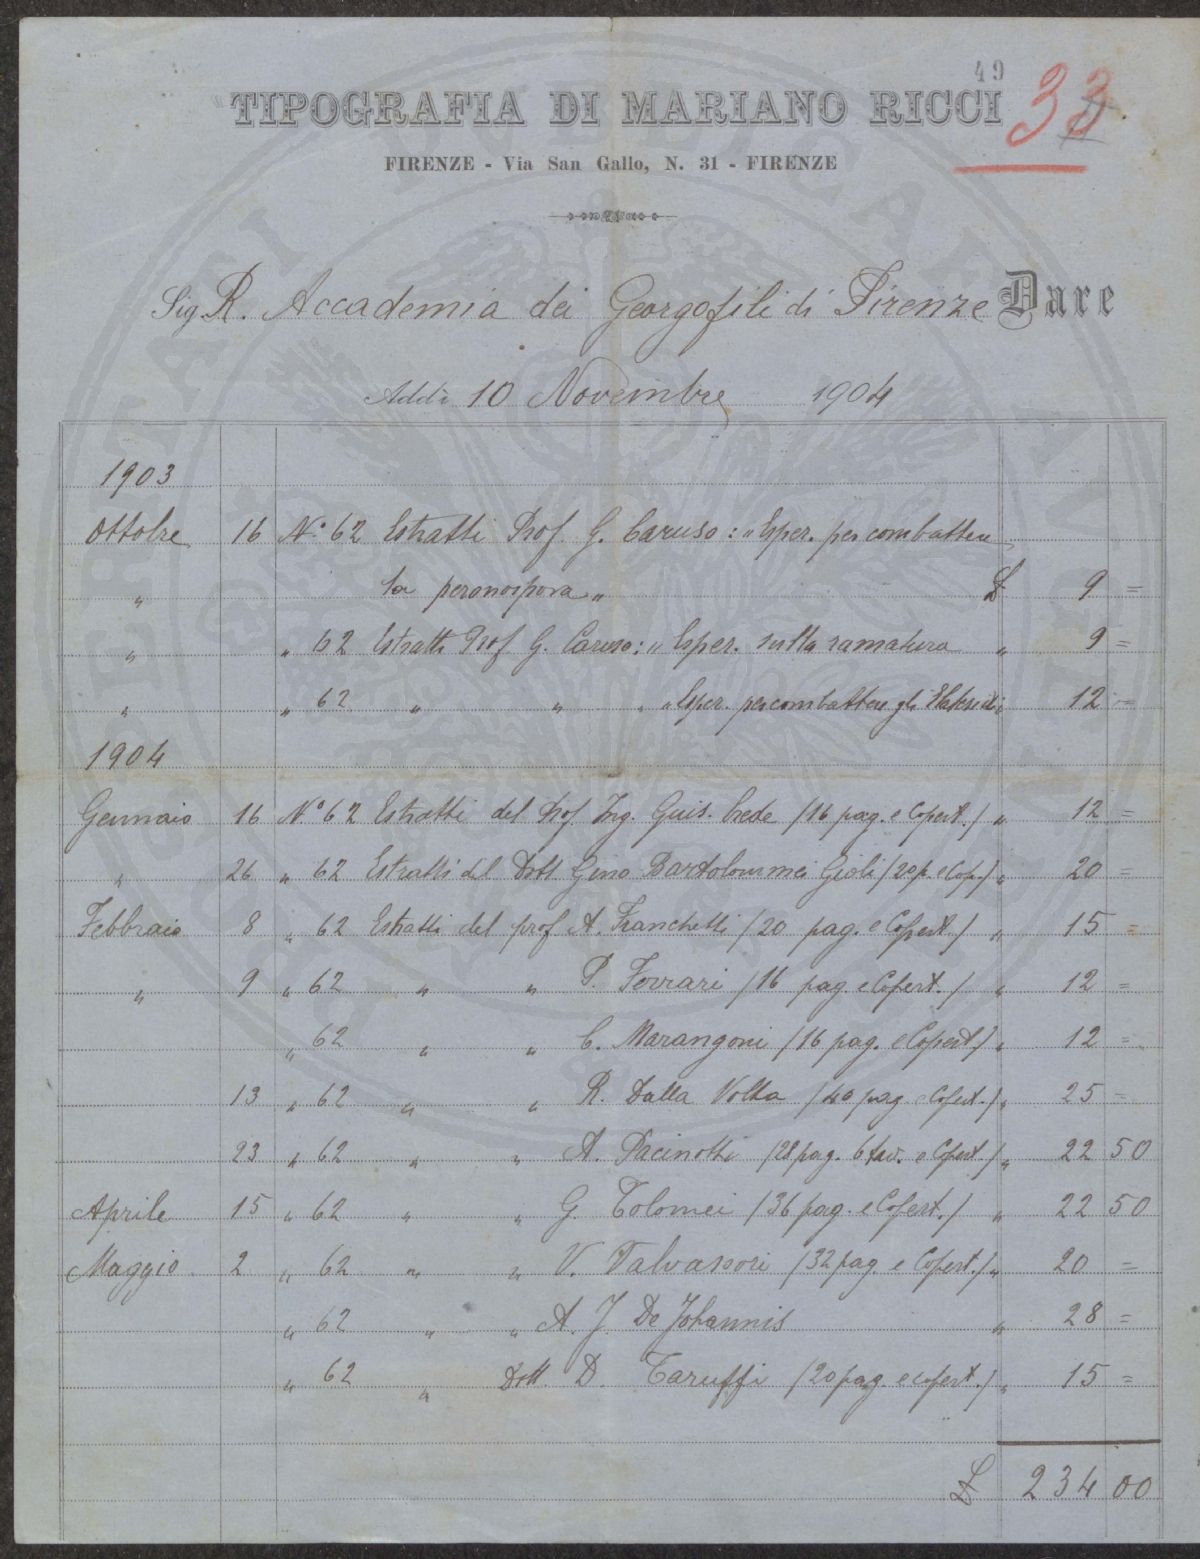 49
33
TIPOGRAFIA DI MARIANO RICCI
FIRENZE - Via San Gallo, N. 31 - FIRENZE
Sig. R. Accademia dei Georgofili di Firenze Dare
Addì 10 Novembre 1904
1903
Ottobre 16 N.° 62 Estratti Prof. G. Caruso: "Esper. per combattere
" la peronospora" £ 9 =
" " 62 Estratti Prof G. Caruso: "Esper. sulla ramatura " 9 =
" " 62 " " " "Esper. per combattere gli Elateridi " 12 =
1904
Gennaio 16 N.° 62 Estratti del Prof Ing. Guis. Crede /16 pag. e Copert./ " 12 =
" 26 " 62 Estratti del Dott Gino Bartolommei Gioli /20 p. e Cop./ " 20 =
Febbraio 8 " 62 Estratti del prof A. Franchetti /20 pag. e Copert./ " 15 =
" 9 " 62 " " P. Ferrari /16 pag. e Copert./ " 12 =
" 62 " " C. Marangoni /16 pag. e Copert/ " 12 =
13 " 62 " " R. Dalla Volta /40 pag e Copert./ " 25 =
23 " 62 " " A. Pacinotti /28 pag. 6 tav. e Copert./ " 22 50
Aprile 15 " 62 " " G. Tolomei /36 pag. e Copert./ " 22 50
Maggio 2 " 62 " " V. Valvassori /32 pag. e Copert./ " 20 =
" 62 " " A. J. De Johannis " 28 =
" 62 " Dott. D. Taruffi /20 pag. e copert./ " 15 =
£ 234 00